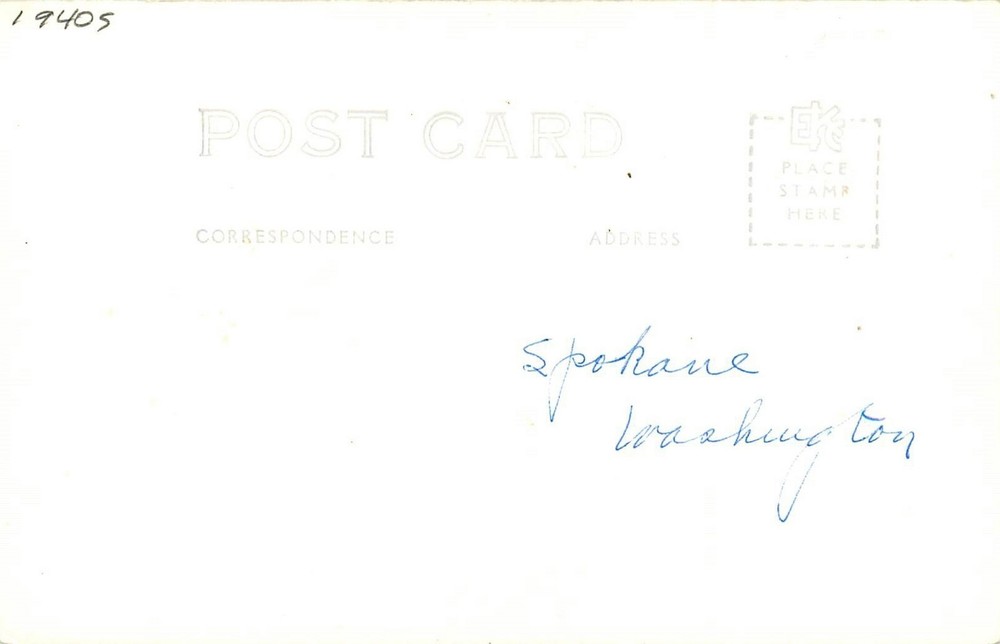 1940s
POST CARD
EKC
PLACE
STAMP
HERE
CORRESPONDENCE
ADDRESS
Spokane
Washington